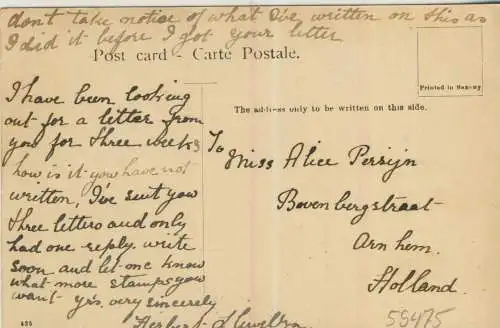 dont take notice of what I've written on this as
I did it before I got your letter
Post card - Carte Postale.
Printed in Saxony
The address only to be written on this side.
I have been looking
out for a letter from
you for three weeks
how is it you have not
written, I've sent you
three letters and only
had one reply. write
soon and let me know
what more stamps you
want yrs. very sincerely
Herbert
To
Miss Alice Persijn
Bovenbergstraat
Arnhem.
Holland